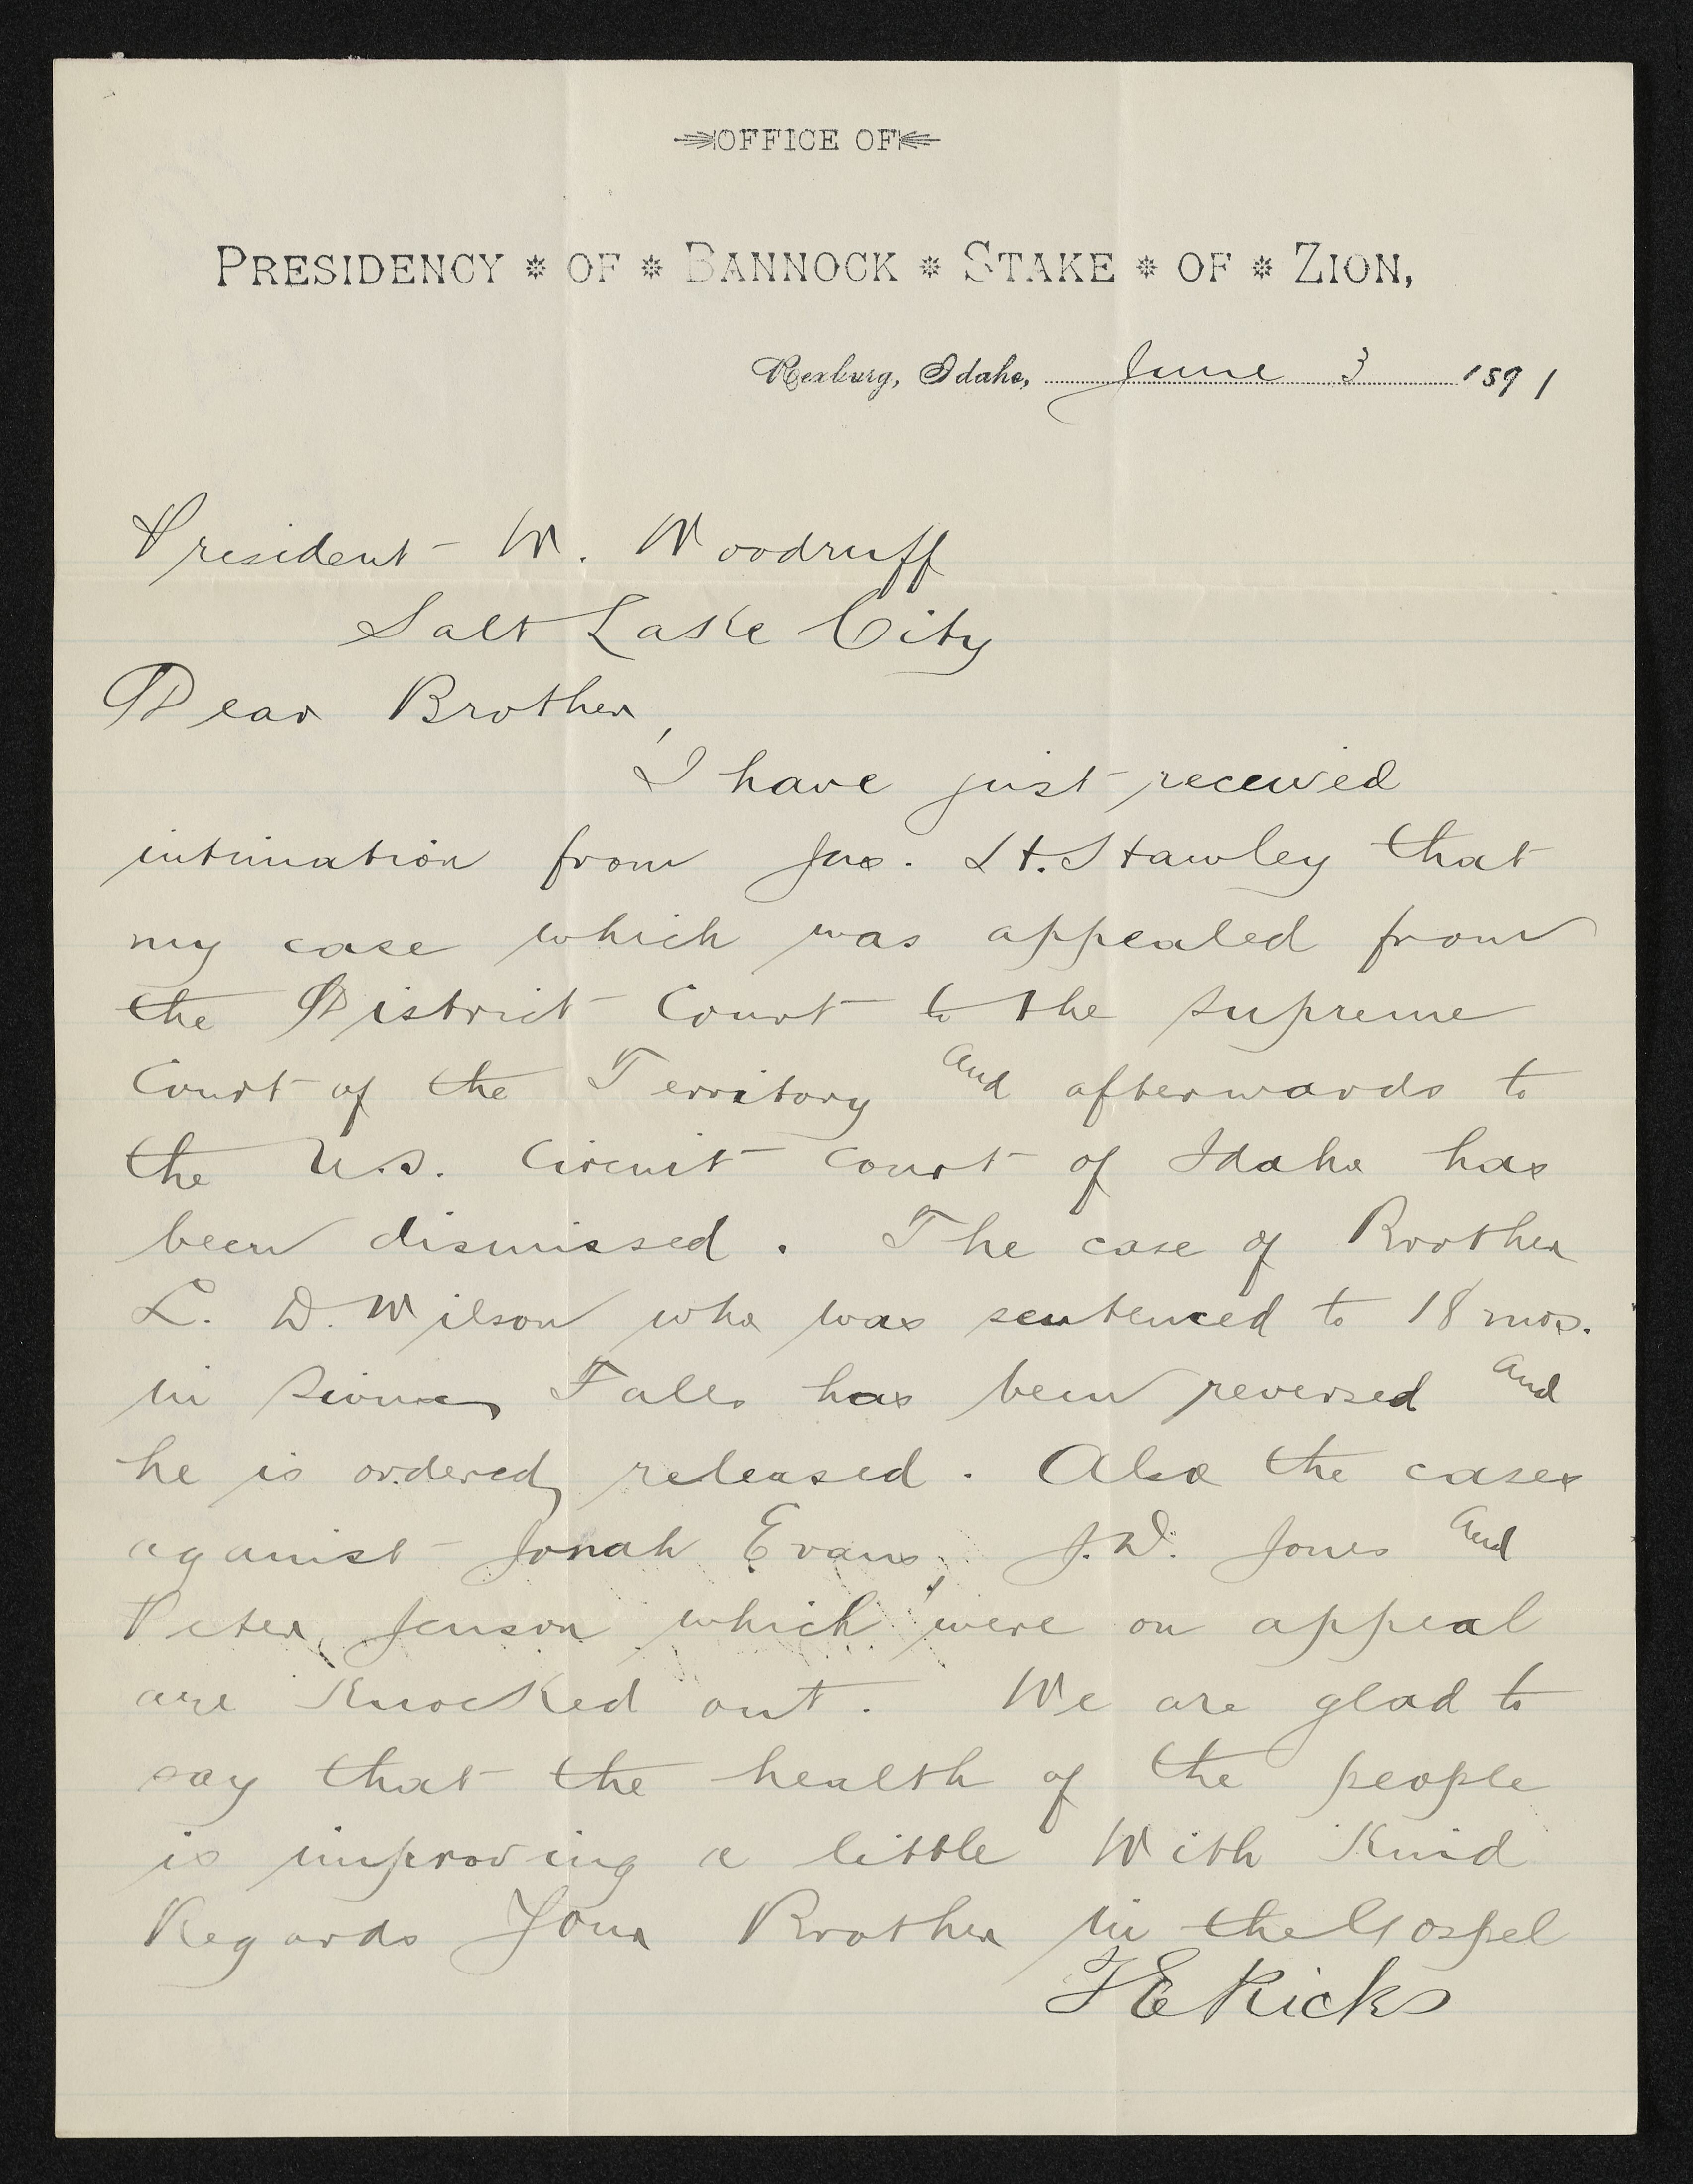 OFFICE OF
PRESIDENCY * OF * BANNOCK * STAKE * OF * ZION,
Rexburg, Idaho, June 3 1891
President W. Woodruff
Salt Lake City
Dear Brother,
I have just received
intimation from Jas. H. Hawley that
my case which was appealed from
the District Court to the Supreme
Court of the Territory and afterwards to
the U.S. Circuit Court of Idaho has
been dismissed. The case of Brother
L. D. Wilson who was sentenced to 18 mos.
in Sioux Falls has been reversed and
he is ordered released. Also the cases
against Jonah Evans, J. D. Jones and
Peter Jenson which were on appeal
are Knocked out. We are glad to
say that the health of the people
is improving a little With Kind
Regards Your Brother in the Gospel
T E Ricks